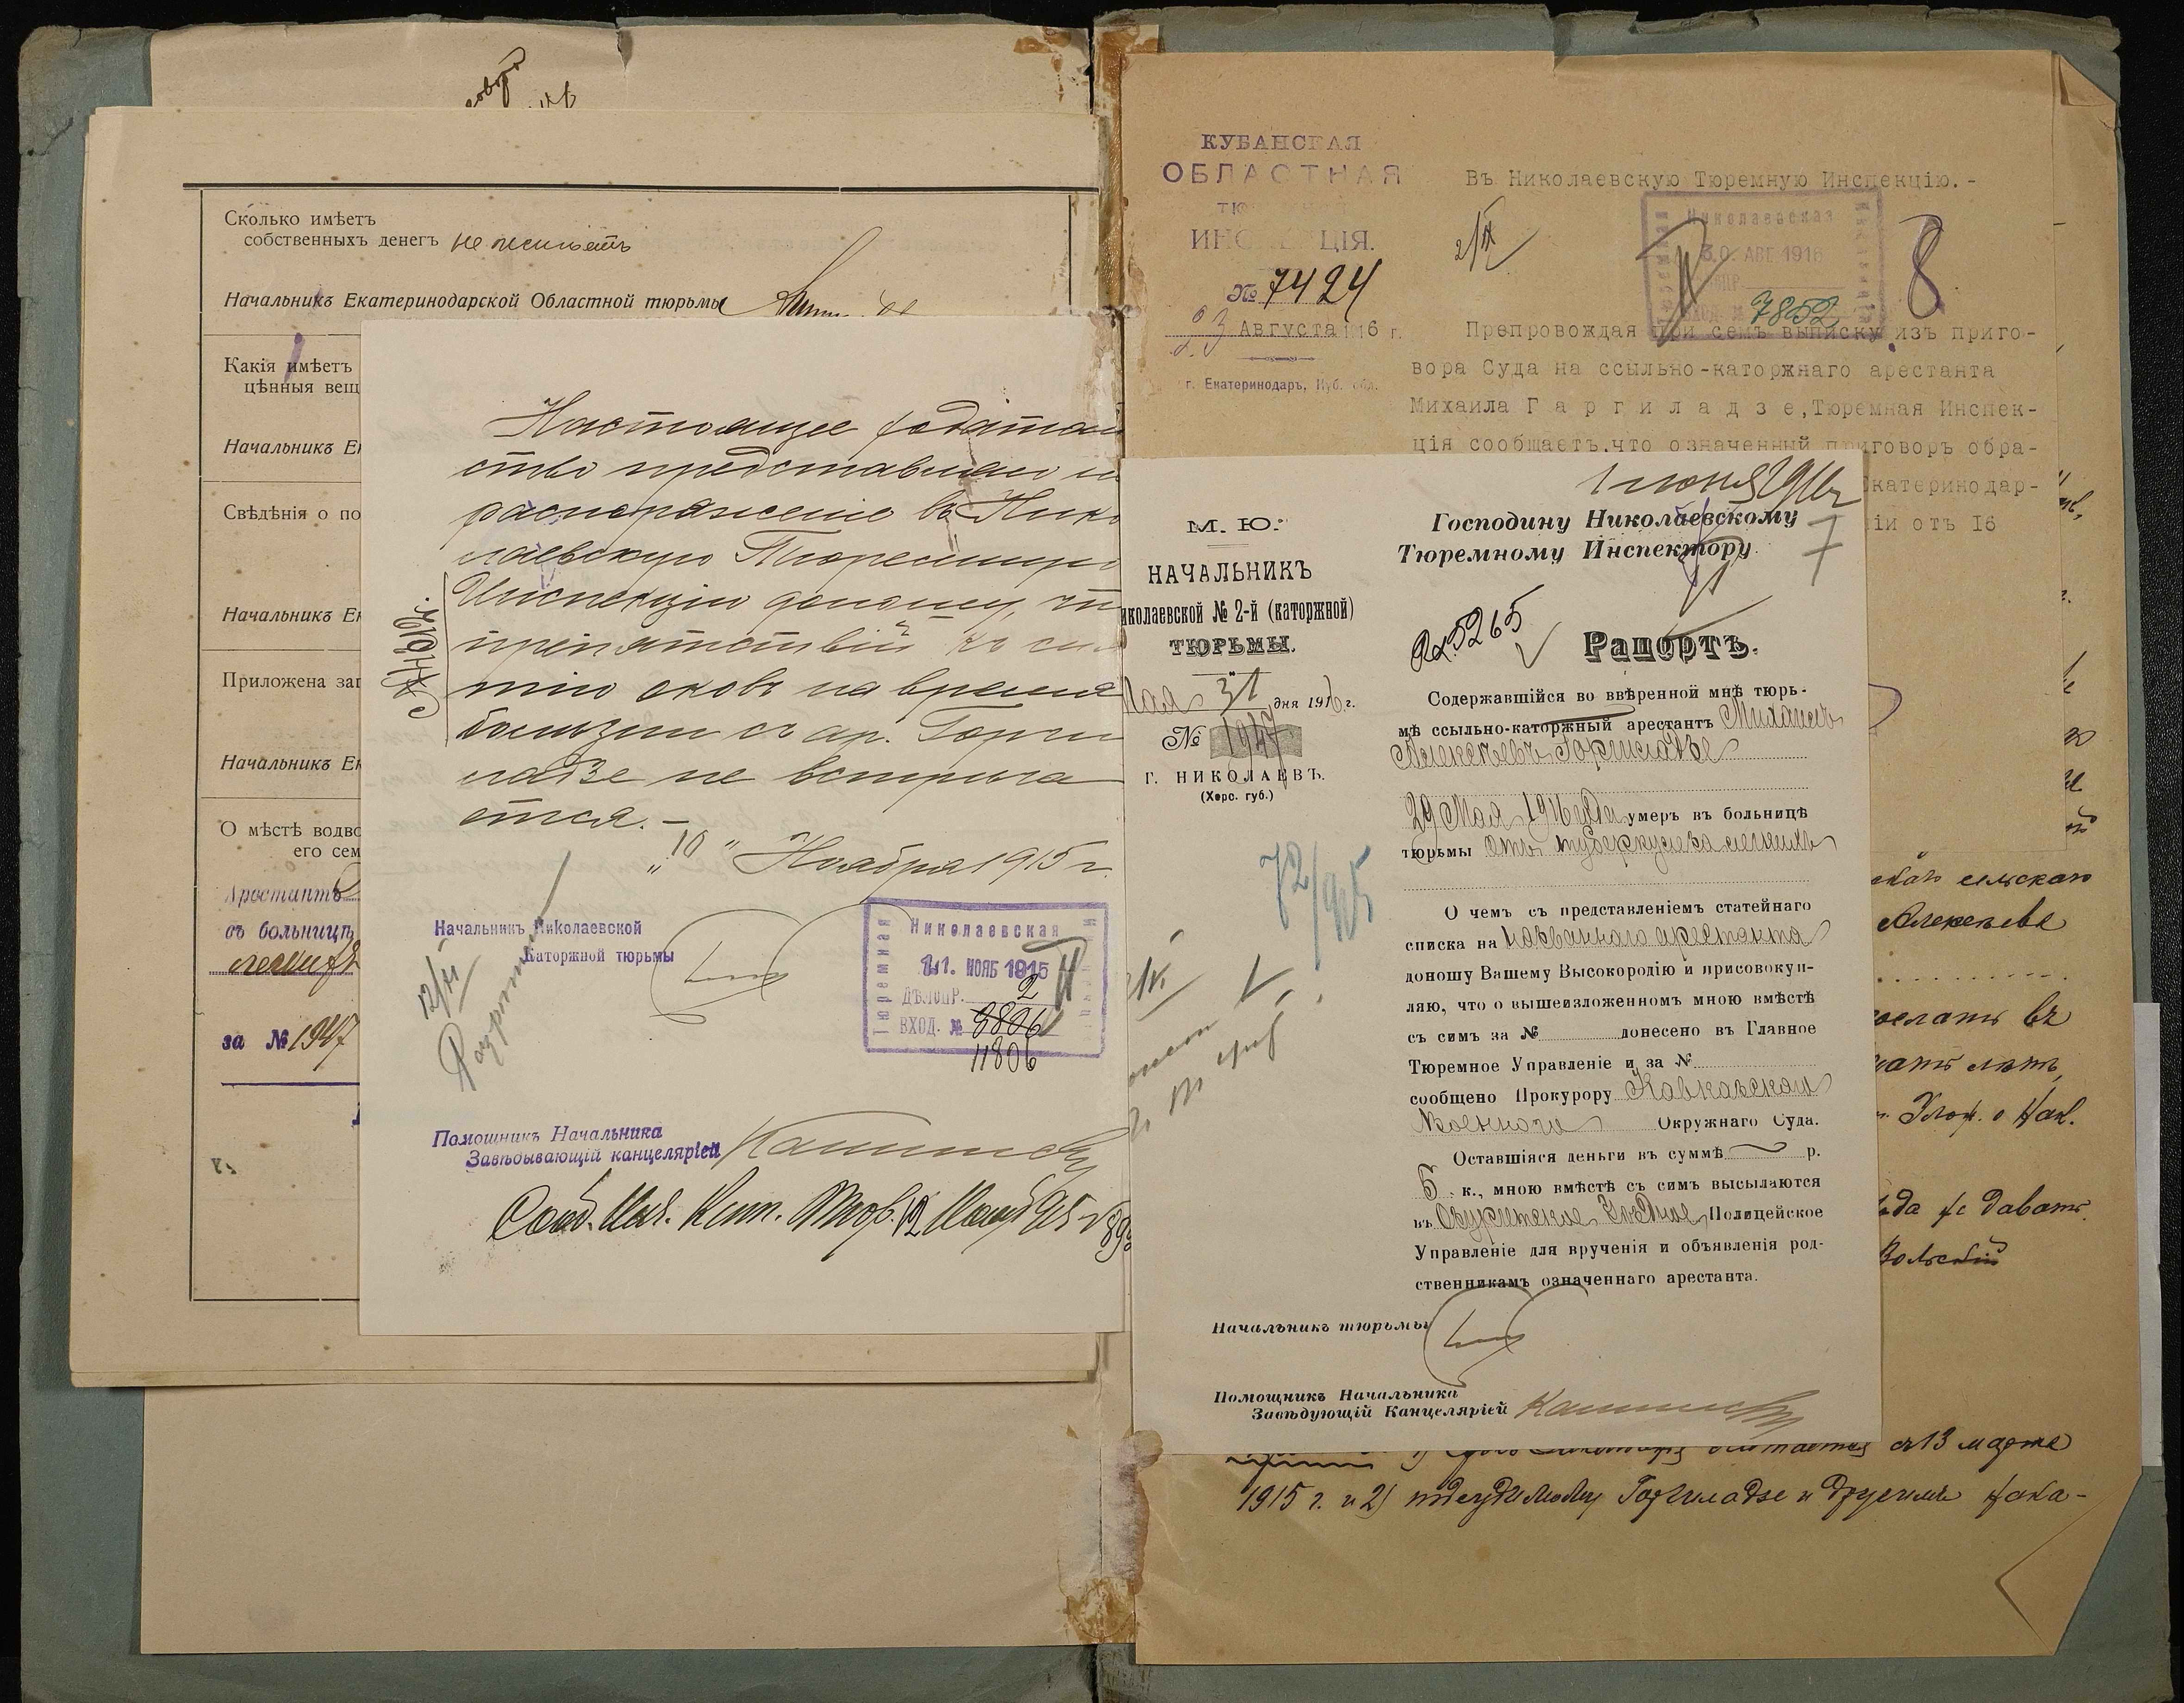 Сколько имѣетъ
собственныхъ денегъ не имѣетъ
Начальникъ Екатеринодарской Областной тюрьмы
Какія имѣетъ
цѣнныя вещ
Начальникъ Ек
Свѣдѣнія о по
Начальникъ Ек
Приложена заг
Начальникъ Ек
О мѣстѣ водво
его сем
Арестантъ
въ больницѣ
легкихъ
за №1947
Настоящее ходатай
ство представляю на
распоряженіе въ Нико
лаевскую Тюремную
Инспекцію доношу, что
препятствій къ сня
тію оковъ на время
болѣзни съ ар. Горги
ладзе не встрѣча
ется.—
„10" Ноября 1915 г.
Начальникъ Николаевской
Каторжной тюрьмы
12/XI
Николаевская
Тюремная
11. НОЯБ 1915
ДѢЛОПР. 2
ВХОД. № 9806
11806
Помощникъ Начальника
Завѣдывающій канцеляріей
КУБАНСКАЯ
ОБЛАСТНАЯ
ИНС ЦІЯ.
№ 7424
23 Августа 1916 г.
г. Екатеринодаръ, Куб. обл.
Въ Николаевскую Тюремную Инспекцію.-
Николаевская
30. АВГ 1916
7852
8
Препровождая при семъ выписку изъ приго-
вора Суда на ссыльно-каторжнаго арестанта
Михаила Г а р г и л а д з е, Тюремная Инспек-
ція сообщаетъ, что означенный приговоръ обра-
катеринодар-
іи отъ 16
М. Ю.
НАЧАЛЬНИКЪ
иколаевской № 2-й (каторжной)
ТЮРЬМЫ.
Мая 31 дня 1916 г.
№ 1947
Г. НИКОЛАЕВЪ.
(Херс. губ.)
72/915
1 июня 916 г
Господину Николаевскому
Тюремному Инспектору.
7
Вх 5265
Рапортъ.
Содержавшійся во ввѣренной мнѣ тюрь-
мѣ ссыльно-каторжный арестантъ Михаилъ
Алексѣевъ Горгиладзе
29 Мая 1916 года умеръ въ больницѣ
тюрьмы отъ туберкулеза легкихъ
О чемъ съ представленіемъ статейнаго
списка на названнаго арестанта
доношу Вашему Высокородію и присовокуп-
ляю, что о вышеизложенномъ мною вмѣстѣ
съ симъ за № донесено въ Главное
Тюремное Управленіе и за №
сообщено Прокурору Кавказскаго
Военнаго Окружнаго Суда.
Оставшіяся деньги въ суммѣ р.
5 к., мною вмѣстѣ съ симъ высылаются
въ Озургетское Уѣздное Полицейское
Управленіе для врученія и объявленія род-
ственникамъ означеннаго арестанта.
Начальникъ тюрьмы
Помощникъ Начальника
Завѣдующій Канцеляріей
сельскаго
Алексѣева
сослать въ
лѣтъ,
Улож. о Нак.
съ 13 марта
1915 г. и 2) подсудимому Горгиладзе и другимъ нака-